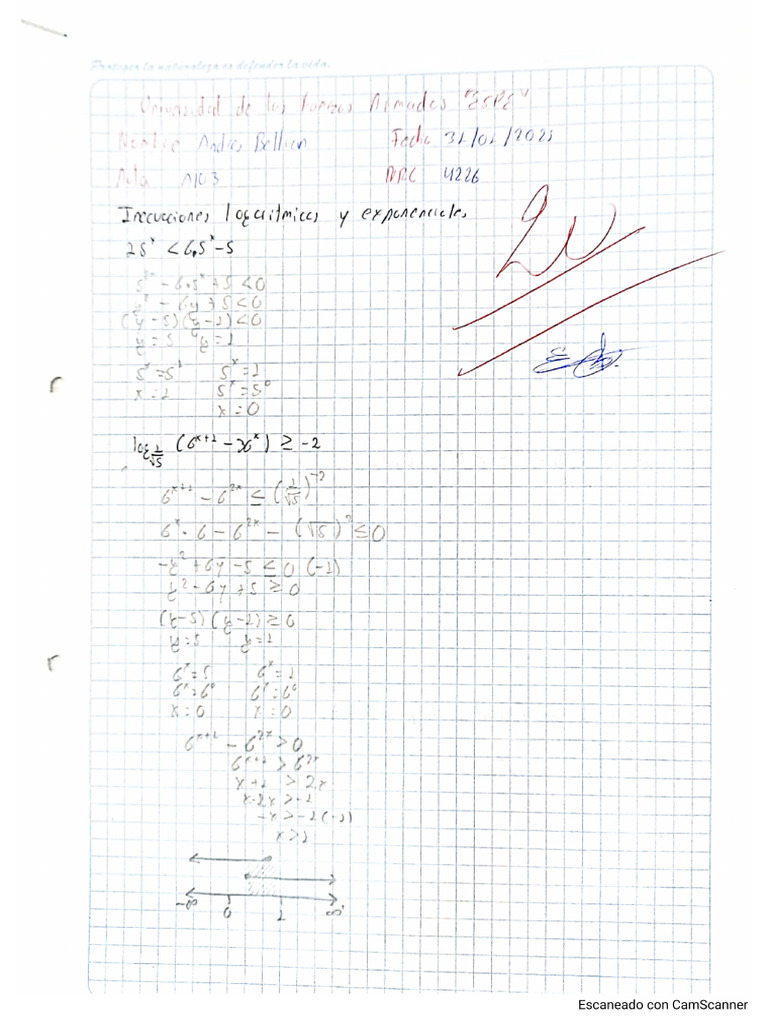 Proteger la naturaleza es defender la vida.
Universidad de las Fuerzas Armadas "ESPE"
Nombre Andres Fecha 31/01/2021
A103 NRC 4226
Inecuaciones logaritmicas y exponenciales
25^x < 6.5^x - 5
20
5^2x - 6.5^x + 5 < 0
- 6y + 5 < 0
(y - 5) (y - 1) < 0
y = 5 y = 1
5^x = 5^1 5^x = 1
x = 1 5^x = 5^0
x = 0
log 1/√5 (6^x+1 - 36^x) ≥ -2
6^x+1 - 6^2x ≤ (1/√5)^-2
6^x · 6 - 6^2x - (√5)^2 ≤ 0
-y^2 + 6y - 5 ≤ 0 (-1)
y^2 - 6y + 5 ≥ 0
(y - 5) (y - 1) ≥ 0
y = 5 y = 1
6^x = 5 6^x = 1
6^x = 6^0 6^x = 6^0
x = 0 x = 0
6^x+1 - 6^2x > 0
6^x+1 > 6^2x
x + 1 > 2x
x - 2x > -1
-x > -1 (-1)
x > 1
-∞ 0 1 ∞
Escaneado con CamScanner